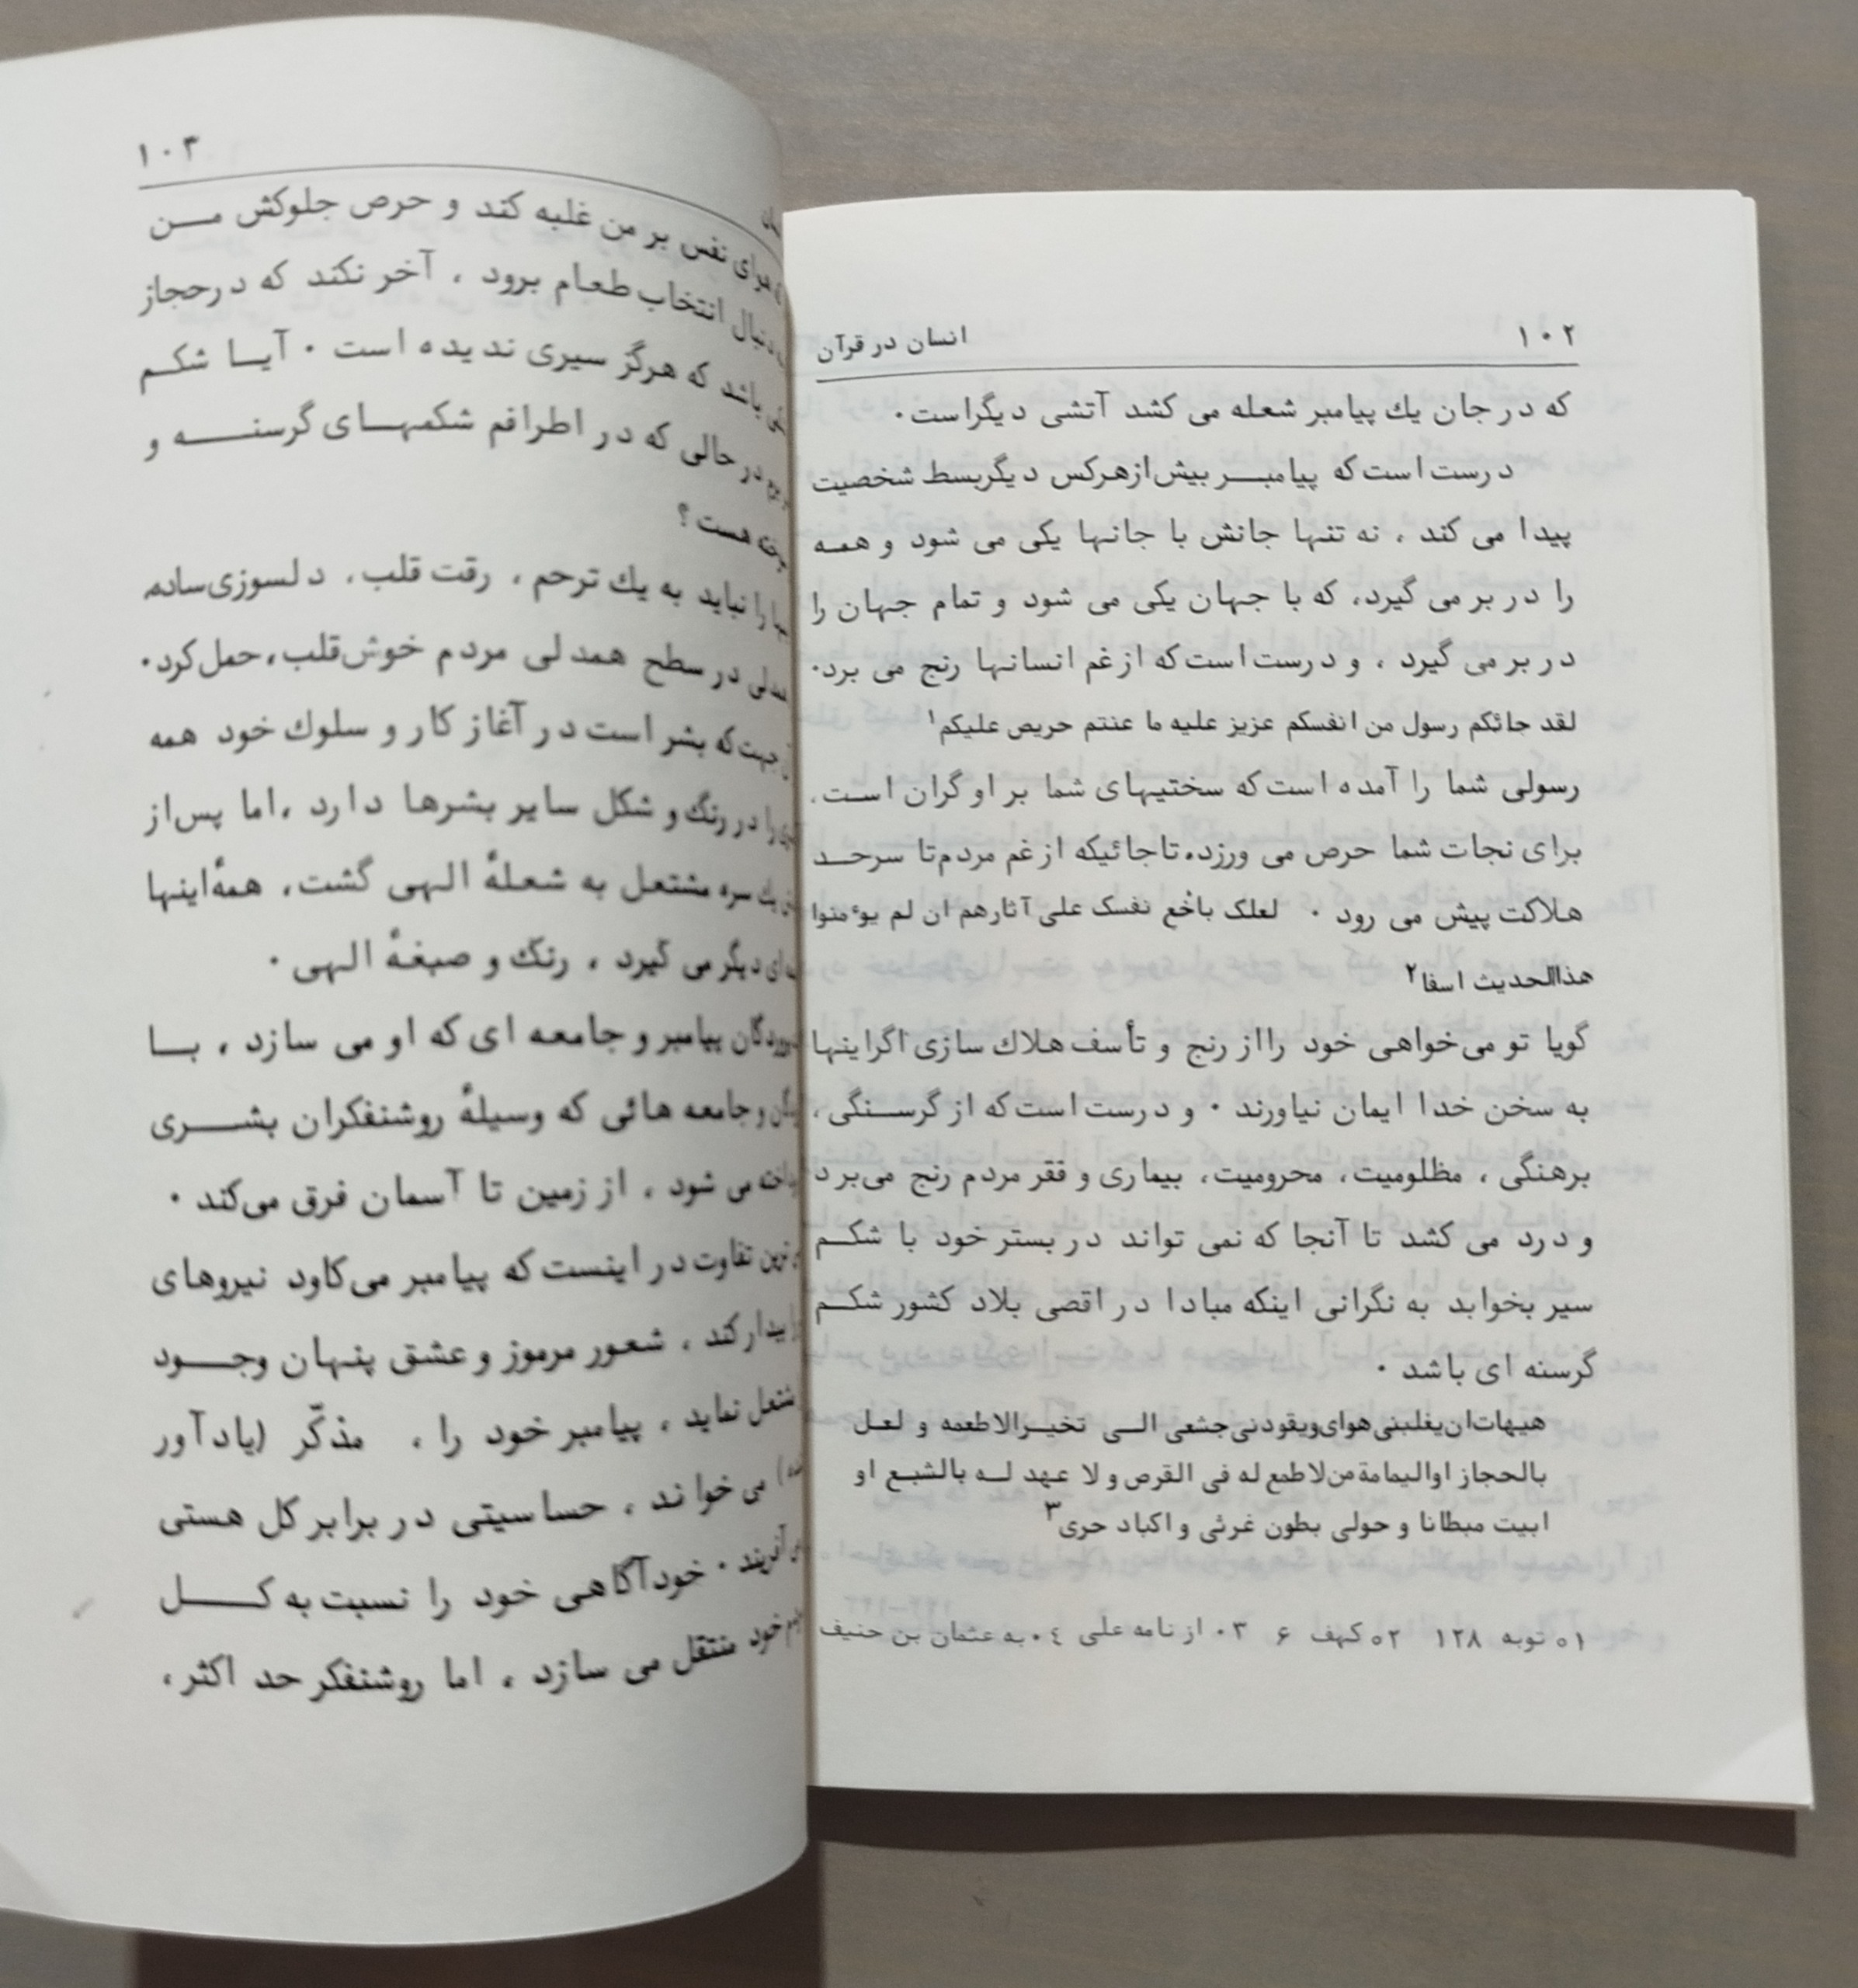 ۱۰۲
انسان در قرآن
که در جان یك پیامبر شعله می کشد آتشی دیگراست.
درست است که پیامبر بیش از هرکس دیگر بسط شخصیت
پیدا می کند ، نه تنها جانش با جانها یکی می شود و همه
را در بر می گیرد، که با جهان یکی می شود و تمام جهان را
در بر می گیرد ، و درست است که از غم انسانها رنج می برد.
لقد جائکم رسول من انفسکم عزیز علیه ما عنتم حریص علیکم۱
رسولی شما را آمده است که سختیهای شما بر او گران است.
برای نجات شما حرص می ورزد. تا جائیکه از غم مردم تا سرحد
هلاکت پیش می رود . لعلک باخع نفسک علی آثارهم ان لم یوٴمنوا
هذاالحدیث اسفا۲
گویا تو می‌خواهی خود را از رنج و تأسف هلاك سازی اگر اینها
به سخن خدا ایمان نیاورند . و درست است که از گرسنگی ،
برهنگی ، مظلومیت، محرومیت، بیماری و فقر مردم رنج می‌برد
و درد می کشد تا آنجا که نمی تواند در بستر خود با شکم
سیر بخوابد به نگرانی اینکه مبادا در اقصی بلاد کشور شکم
گرسنه ای باشد .
هیهات ان یغلبنی هوای و یقودنی جشعی الی تخیر الاطعمه و لعل
بالحجاز اوالیمامة من لاطمع له فی القرص و لا عهد له بالشبع او
ابیت مبطانا و حولی بطون غرثی و اکباد حری۳
۱۰ توبه ۱۲۸ ۲۰ کهف ۶ ۳۰ از نامه علی ۴۰ به عثمان بن حنیف
۱۰۳
هوای نفس بر من غلبه کند و حرص جلوکش من
دنبال انتخاب طعام برود ، آخر نکند که در حجاز
باشد که هرگز سیری ندیده است . آیا شکم
در حالی که در اطرافم شکمهای گرسنه و
هست ؟
را نباید به یك ترحم ، رقت قلب، دلسوزی ساده،
در سطح همدلی مردم خوش‌قلب، حمل کرد.
جهت که بشر است در آغاز کار و سلوك خود همه
را در رنگ و شکل سایر بشرها دارد ،اما پس از
یك سره مشتعل به شعلهٔ الهی گشت، همهٔ اینها
دیگر می گیرد ، رنگ و صبغهٔ الهی .
پیامبر و جامعه ای که او می سازد ، با
و جامعه هائی که وسیلهٔ روشنفکران بشری
می شود ، از زمین تا آسمان فرق می‌کند .
تفاوت در اینست که پیامبر می‌کاود نیروهای
بیدار کند ، شعور مرموز و عشق پنهان وجود
نماید ، پیامبر خود را ، مذکّر (یادآور
می خواند ، حساسیتی در برابر کل هستی
آفریند . خودآگاهی خود را نسبت به کل
خود منتقل می سازد ، اما روشنفکر حد اکثر،